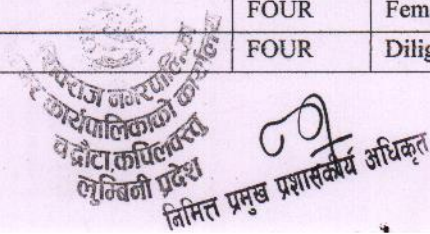 FOUR Fem
FOUR Dilig
नगरपालिका
कार्यपालिकाको
चन्द्रौटा, कपिलवस्तु
लुम्बिनी प्रदेश
निमित्त प्रमुख प्रशासकीय अधिकृत